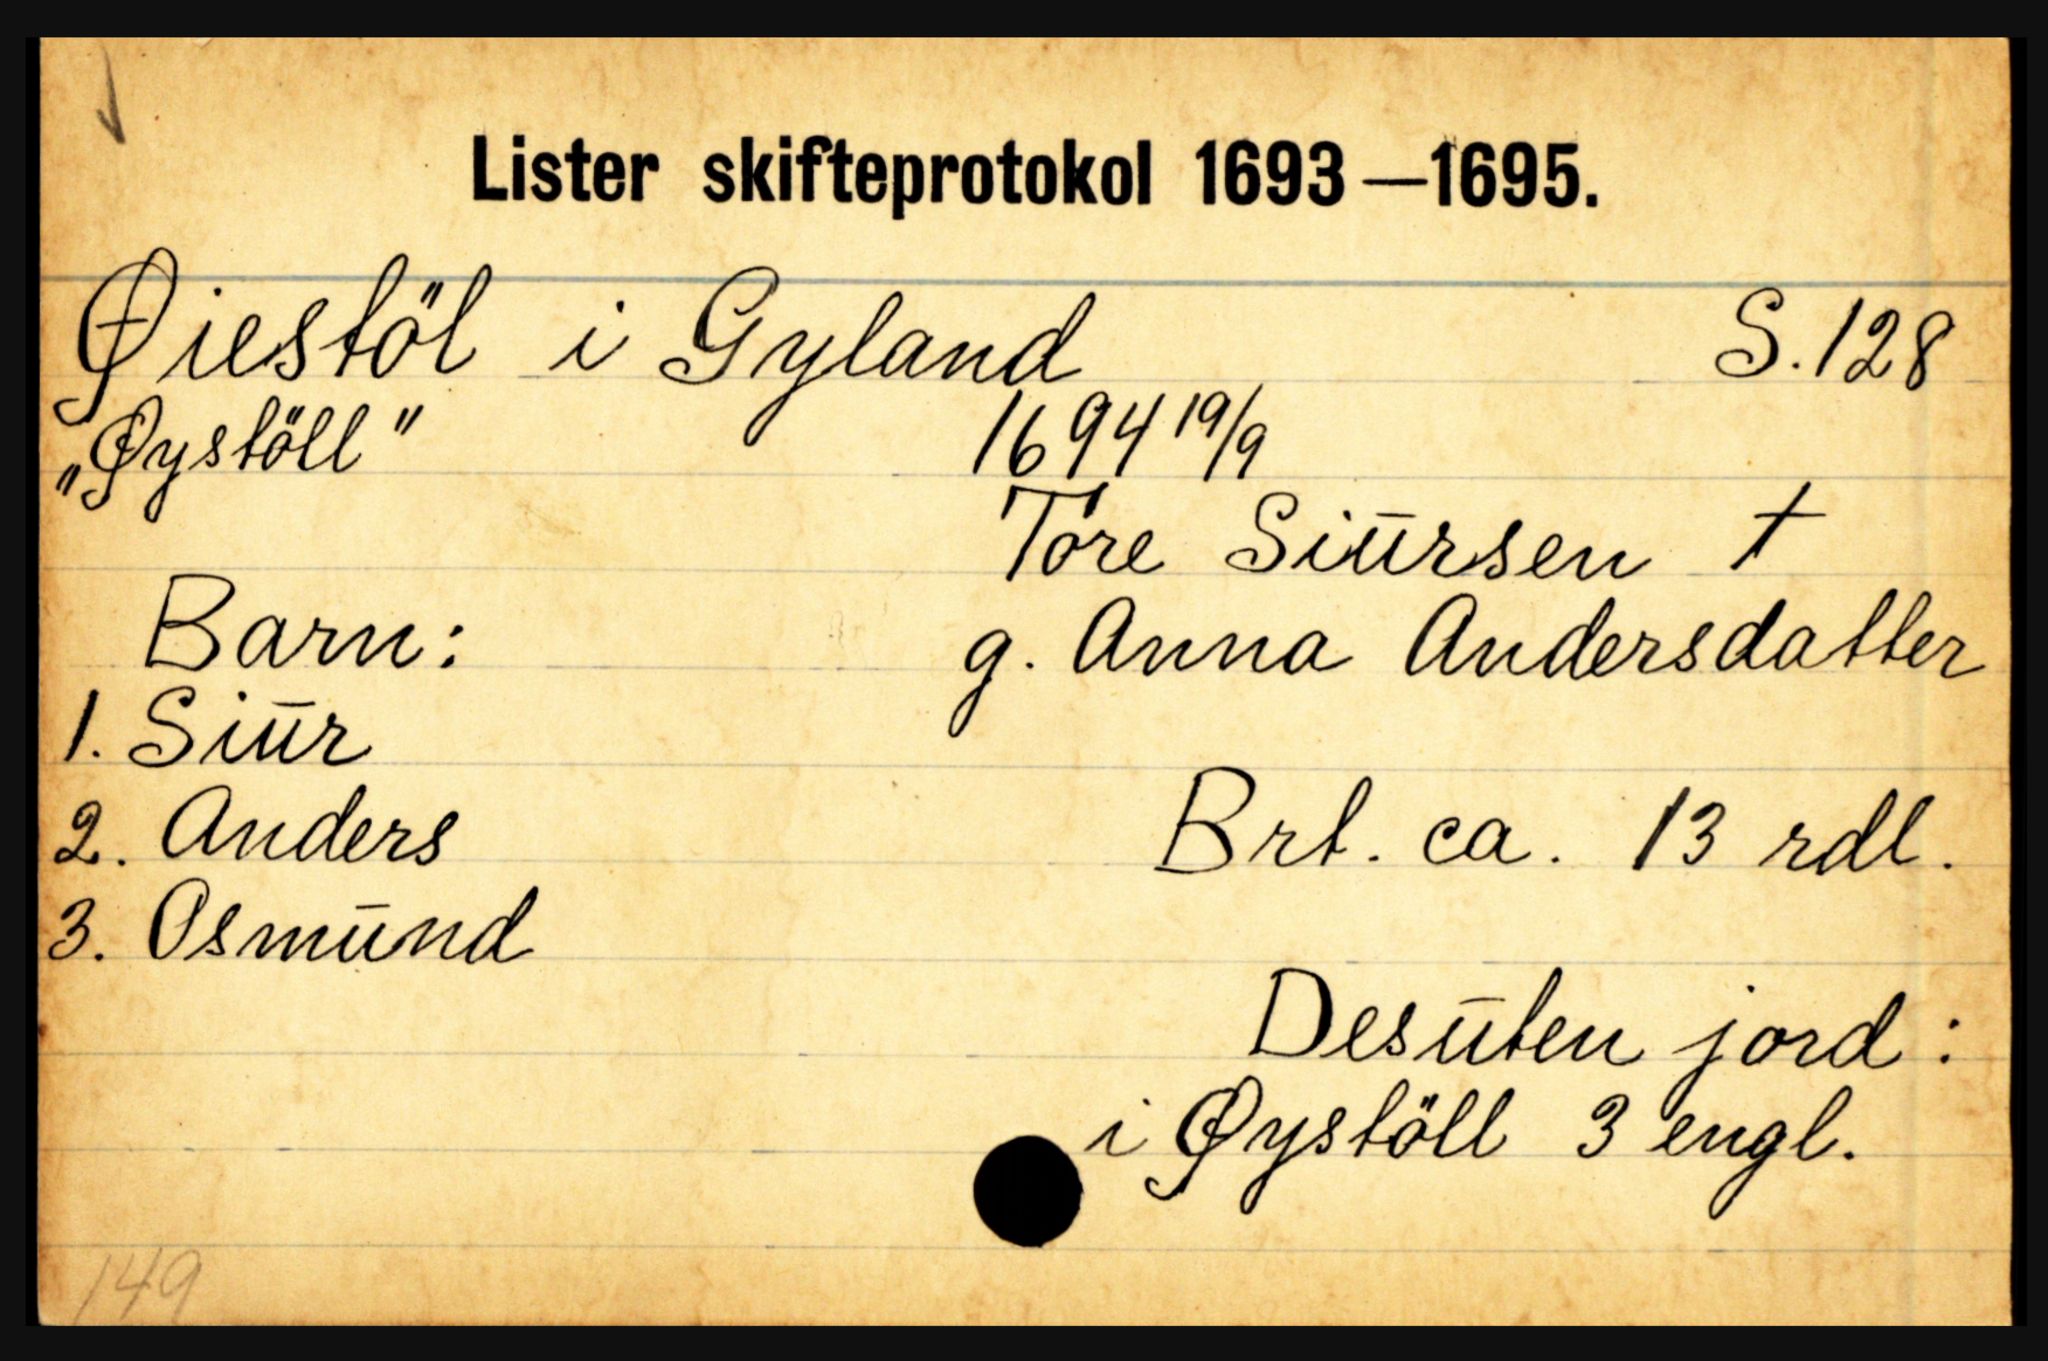 Lister skifteprotokol 1693—1695.
Øiestöl i Gyland S. 128
„Øystöll" 1694 19/9
Tore Siūrsen †
Barn: g. Anna Andersdatter
1. Siūr
2. Anders Brt. ca. 13 rdl.
3. Osmūnd
Desūten jord:
i Øystöll 3 engl.
149